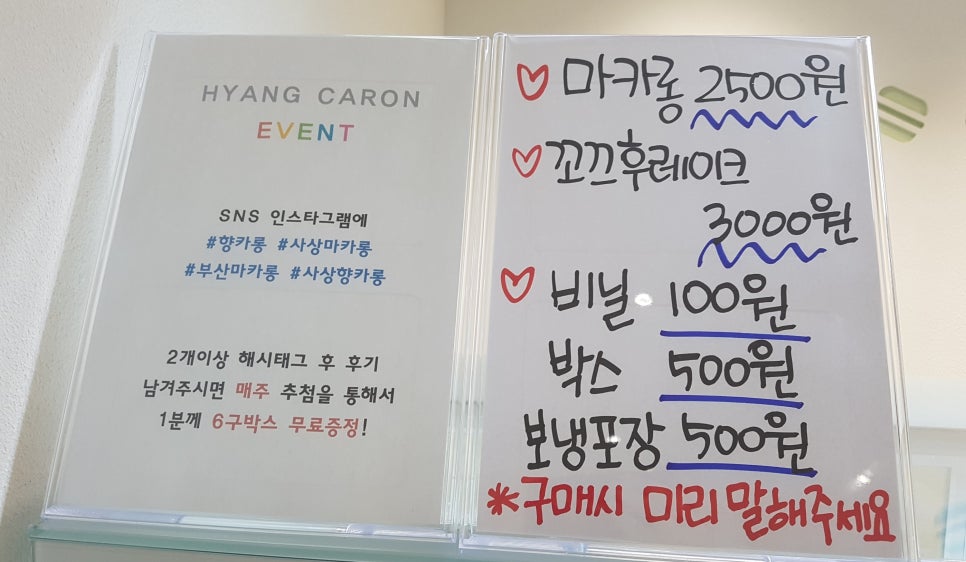 HYANG CARON
EVENT
SNS 인스타그램에
#향카롱 #사상마카롱
#부산마카롱 #사상향카롱
2개이상 해시태그 후 후기
남겨주시면 매주 추첨을 통해서
1분께 6구박스 무료증정!
♡ 마카롱 2500원
♡ 꼬끄후레이크
3000원
♡ 비닐 100원
박스 500원
보냉포장 500원
*구매시 미리 말해주세요